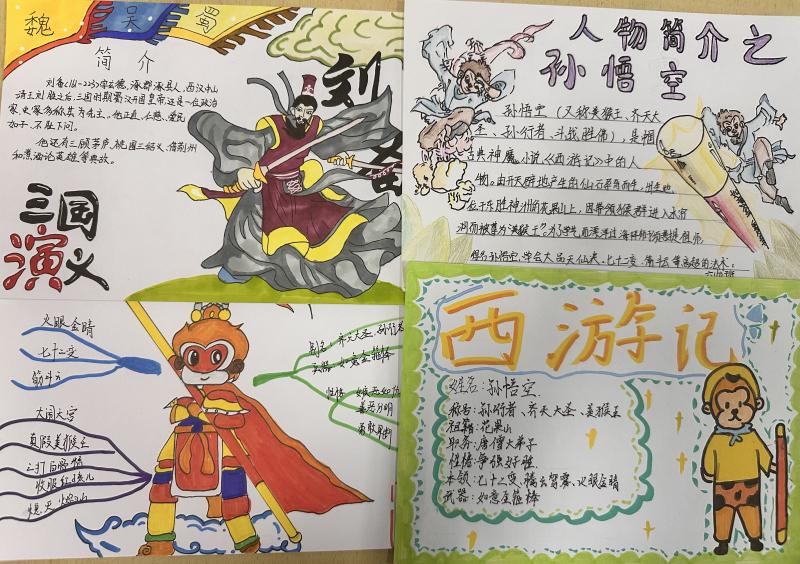 魏 吴 蜀
简 介
刘备(161-223)字玄德,涿郡涿县人,西汉中山
靖王刘胜之后,三国时期蜀汉开国皇帝,还是一位政治
家,史家多称其为先主。他正直、仁慈、爱民
如子、不耻下问。
他还有三顾茅庐、桃园三结义、借荆州
和煮酒论英雄等典故。
刘
备
三国
演义
人物简介之
孙悟空
孙悟空(又称美猴王、齐天大
圣、孙行者、斗战胜佛),是中国
古典神魔小说《西游记》中的人
物。由开天辟地产生的仙石孕育而生,出生地
位于东胜神州的花果山上,因带领猴群进入水帘
洞而被尊为“美猴王”。为了学艺而漂洋过海拜师须菩提祖师,
得名孙悟空,学会大品天仙诀、七十二变、筋斗云等高超的法术。
火眼金睛
七十二变
筋斗云
大闹天宫
真假美猴王
三打白骨精
收服红孩儿
别名:齐天大圣、孙行者
武器:如意金箍棒
性格:嫉恶如仇
善恶分明
勇敢
西游记
姓名:孙悟空
称名:孙行者、齐天大圣、美猴王
祖籍:花果山
职务:唐僧大弟子
性格:争强好胜
本领:七十二变、腾云驾雾、火眼金睛
武器:如意金箍棒